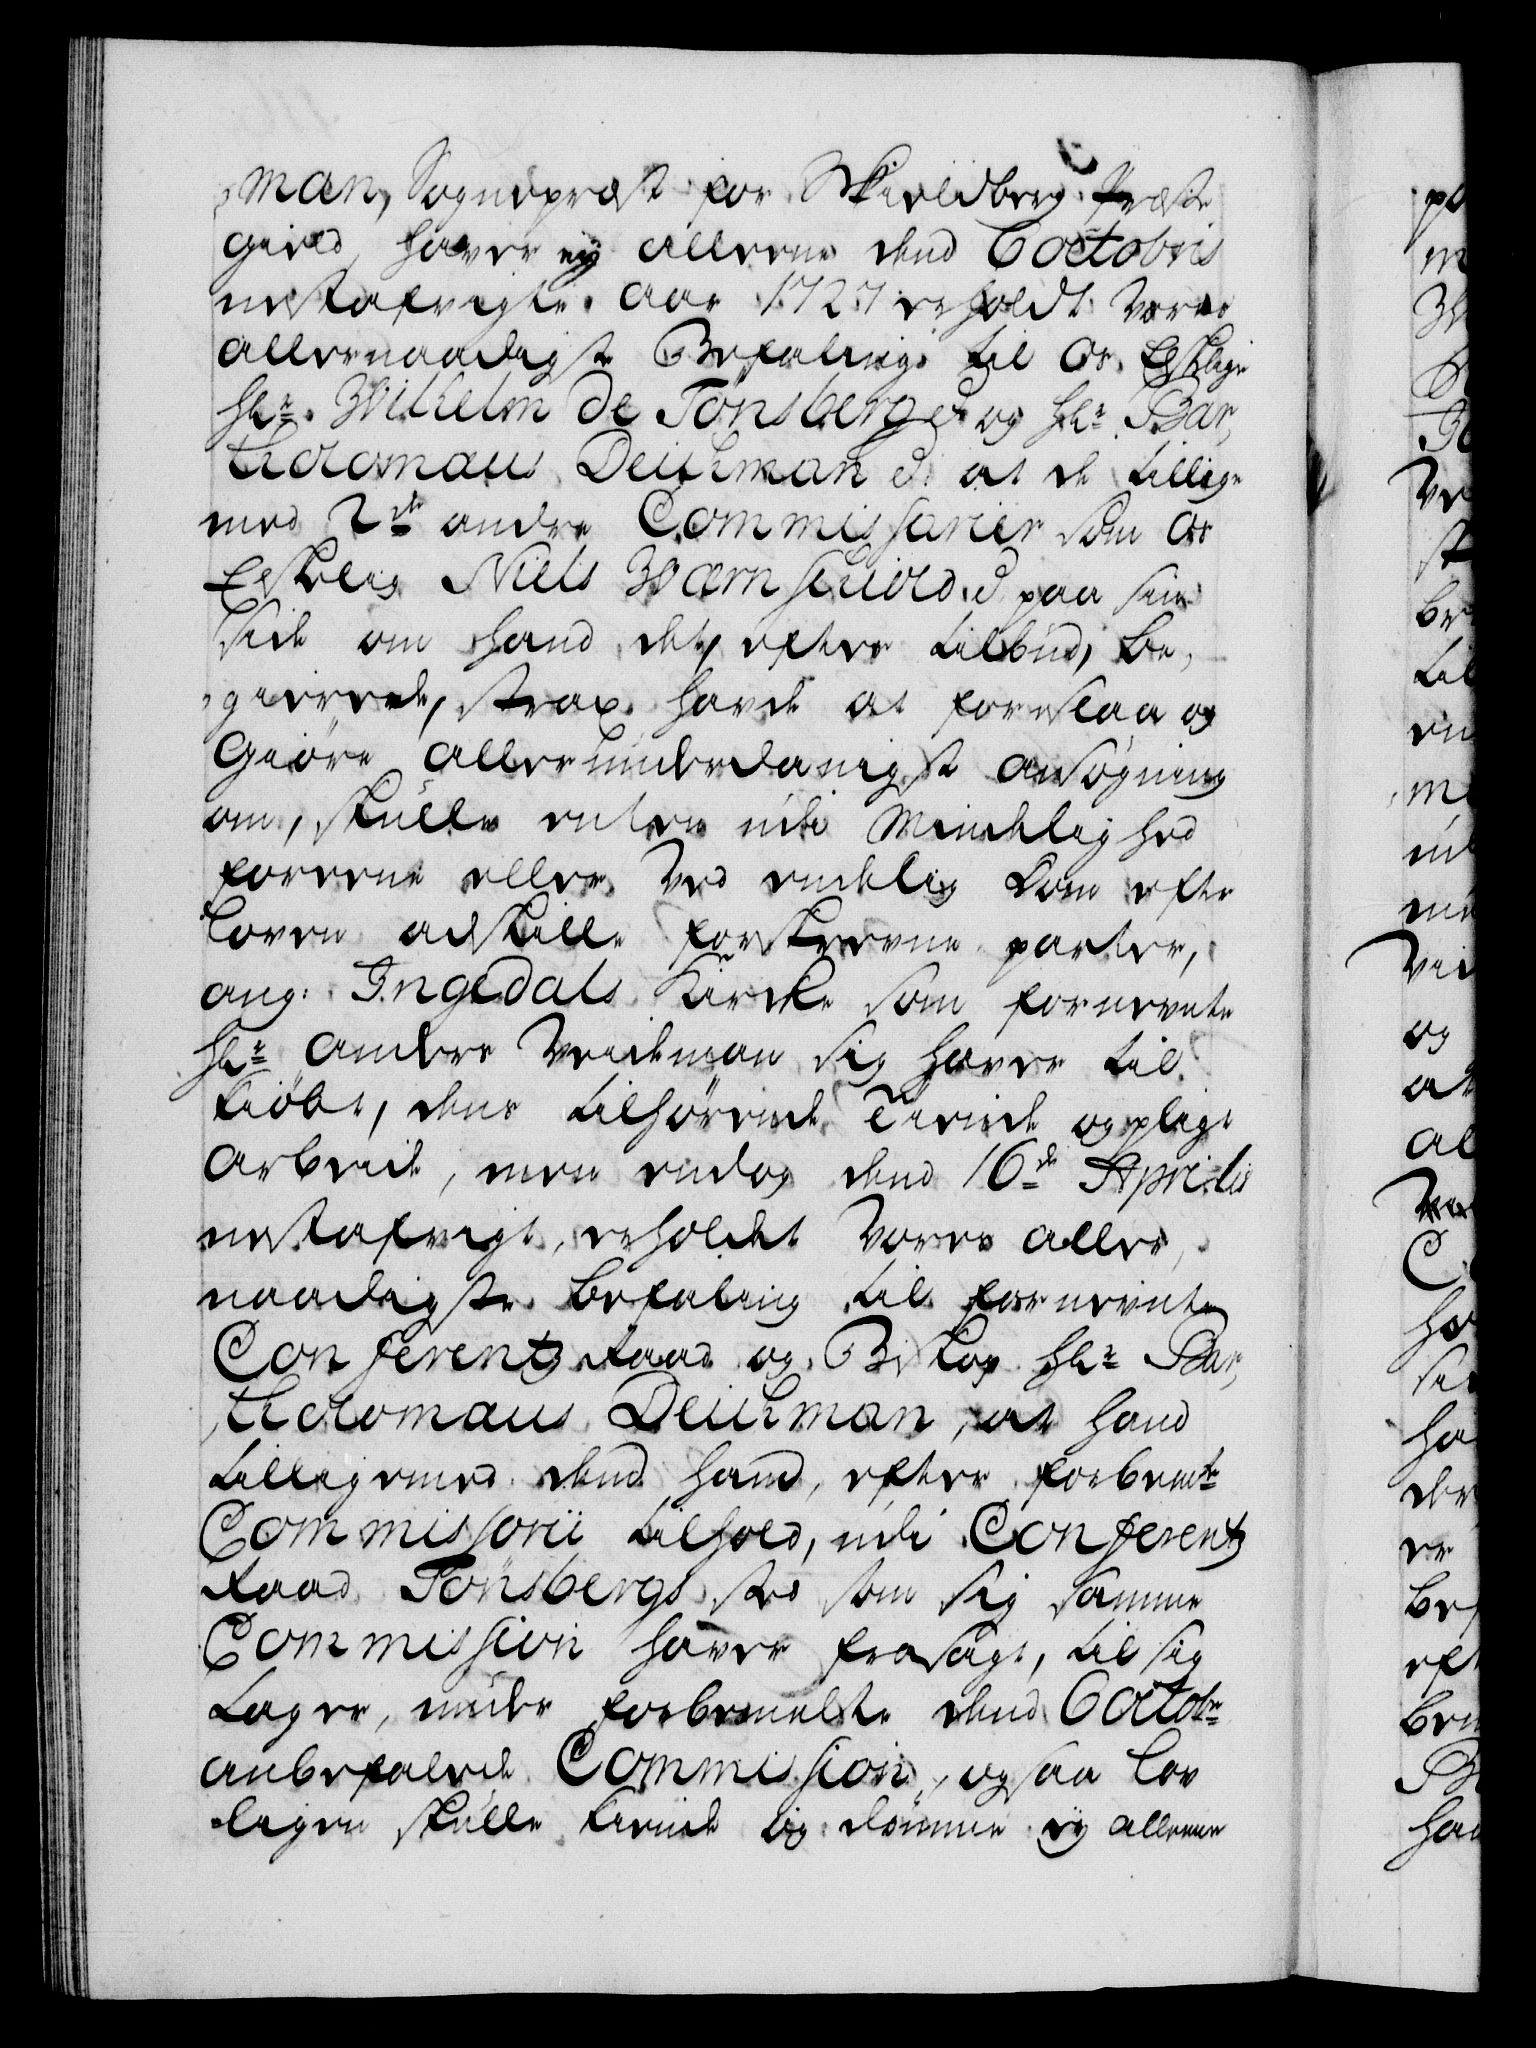 man, Sognepræst for Skieldberg Præste
gield, haver ej alleene dend 6 octobris
nestafvigte Aar 1727 erholdt Vores
allernaadigste Befaling til Os Elskelige
Hr. Wilhelm de Tonsberg d. og Hr. Bar,
tholomæus Deichman d. at de tillige
med 2de andre Commissarier som Os
Elskelig Niels Wærnschiold d. paa sin
Side om hand det, efter tilbud, be,
gierede, strax hafde at foreslaa og
Giöre allerunderdanigst ansögning
om, skulle enten udi Mindelighed
foreene eller Ved endelig Dom efter
Loven adskille forskrevne parter,
ang: Ingedals Kircke som fornevnte
Hr. Anders Weideman sig haver til
kiöbt, dens tilhörende Tiende og pligt
arbeide, men endog dend 16de Aprilis
nestafvigt, erholdet Vores aller,
naadigste befaling til fornevnte
Conferentz Raad og Biskop Hr. Bar,
tholomæus Deichman, at hand
tilligemed dend hand, efter forbemte
Commissorii tilhold, udi Conferentz
Raad Tonsbergs sted som sig samme
Commission haver frasagt, til sig
tager, under forbemelte dend 6 octobr
anbefalede Commission, ogsaa Lov
ligen skulle kiende og dömme ej alleene